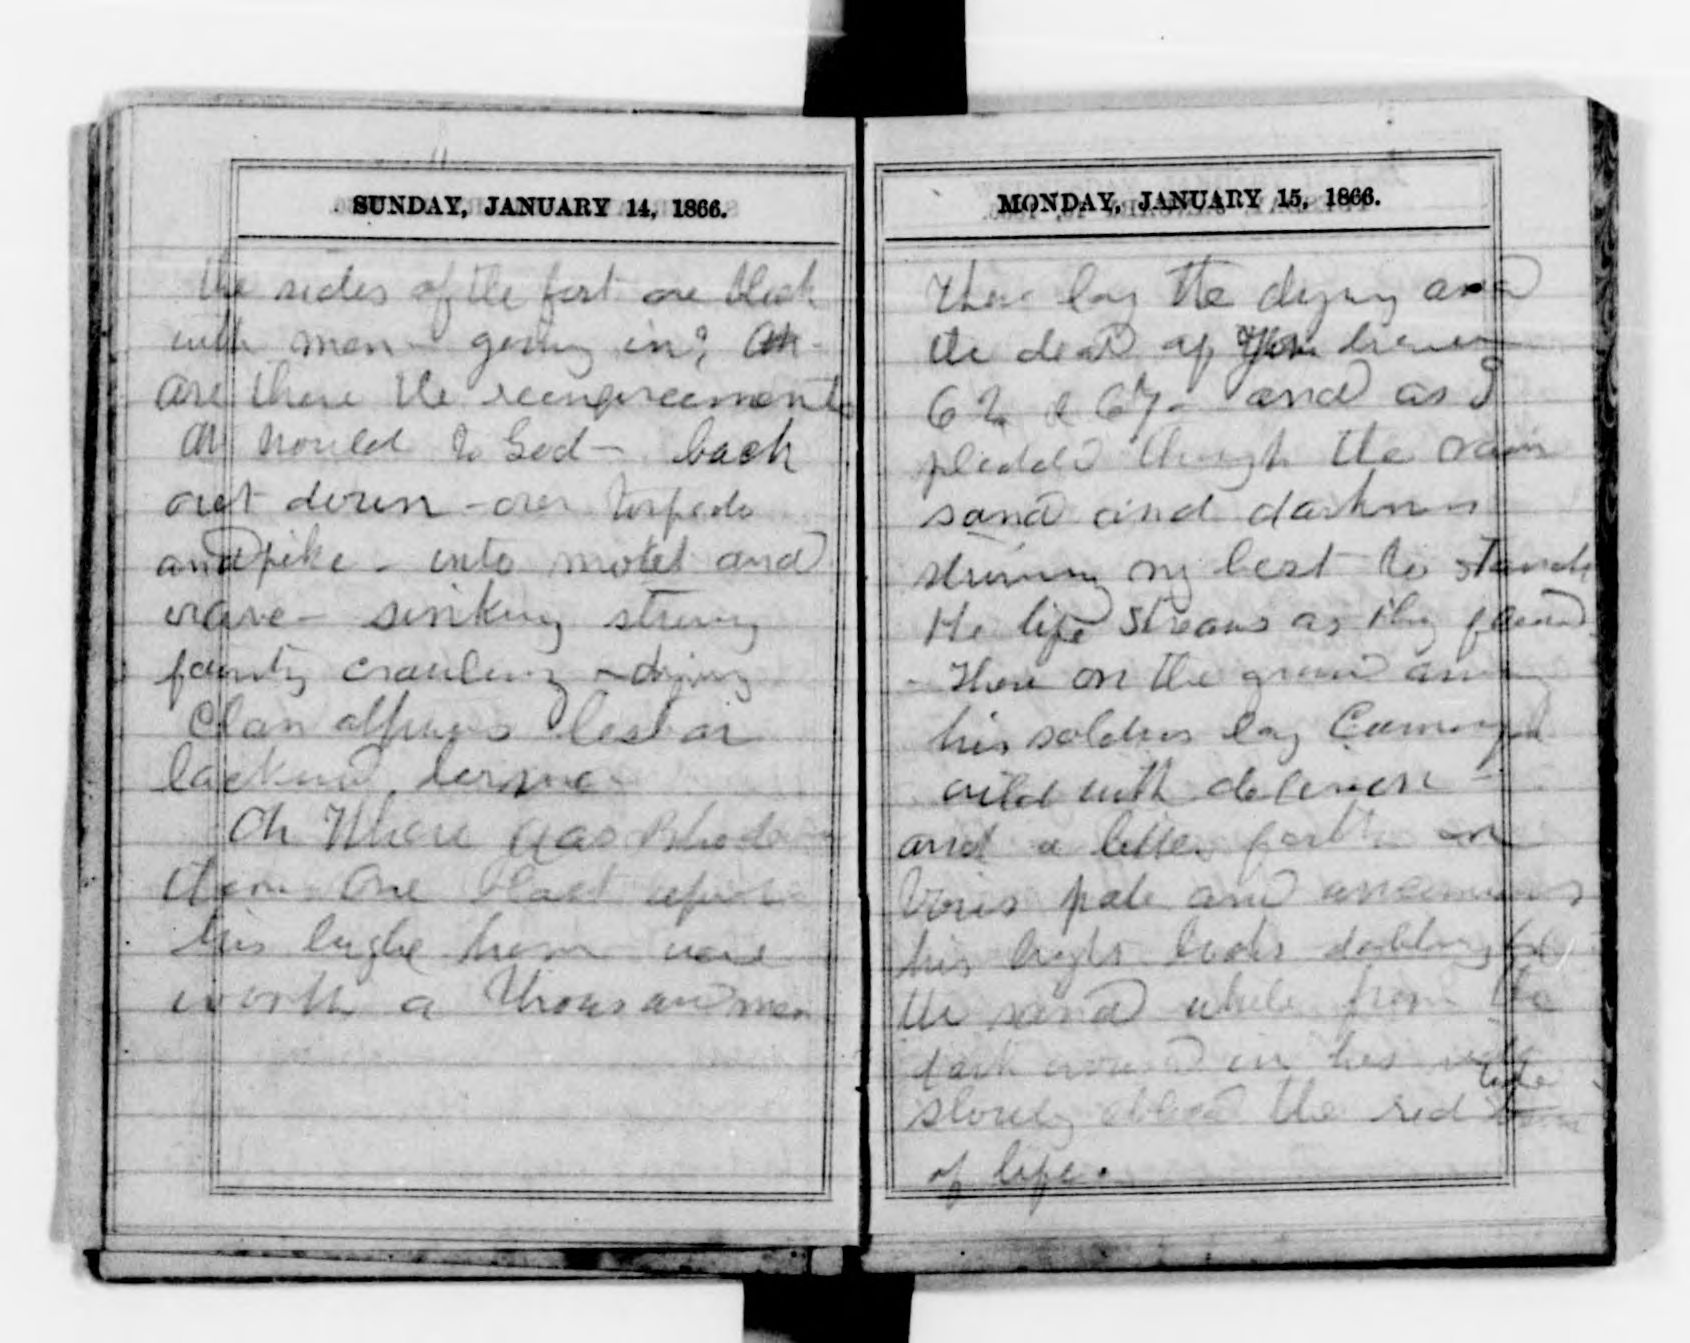 SUNDAY, JANUARY 14, 1866.
the sides of the fort are black
with men - going in? Oh -
are there the reenforcements
Oh would to God - back
out down - over torpedo
and pike - into moat and
wave - sinking striving
fainting crawling - dying
Clan Alpines best are
backward borne -
Oh Where was Rhoderic
then One blast upon
his bugle horn were
worth a thousand men
MONDAY, JANUARY 15, 1866.
There lay the dying and
the dead of
62 & 67 - and as I
plodded through the rain
sand and darkness
striving my best to stanch
the life streams as they flowed
- There on the ground among
his soldiers lay Cumminger
wild with delirium -
and a little farther on
Voris pale and
his bright locks dabbling
the sand while from the
dark wound in his side
slowly ebbed the red tide
of life.